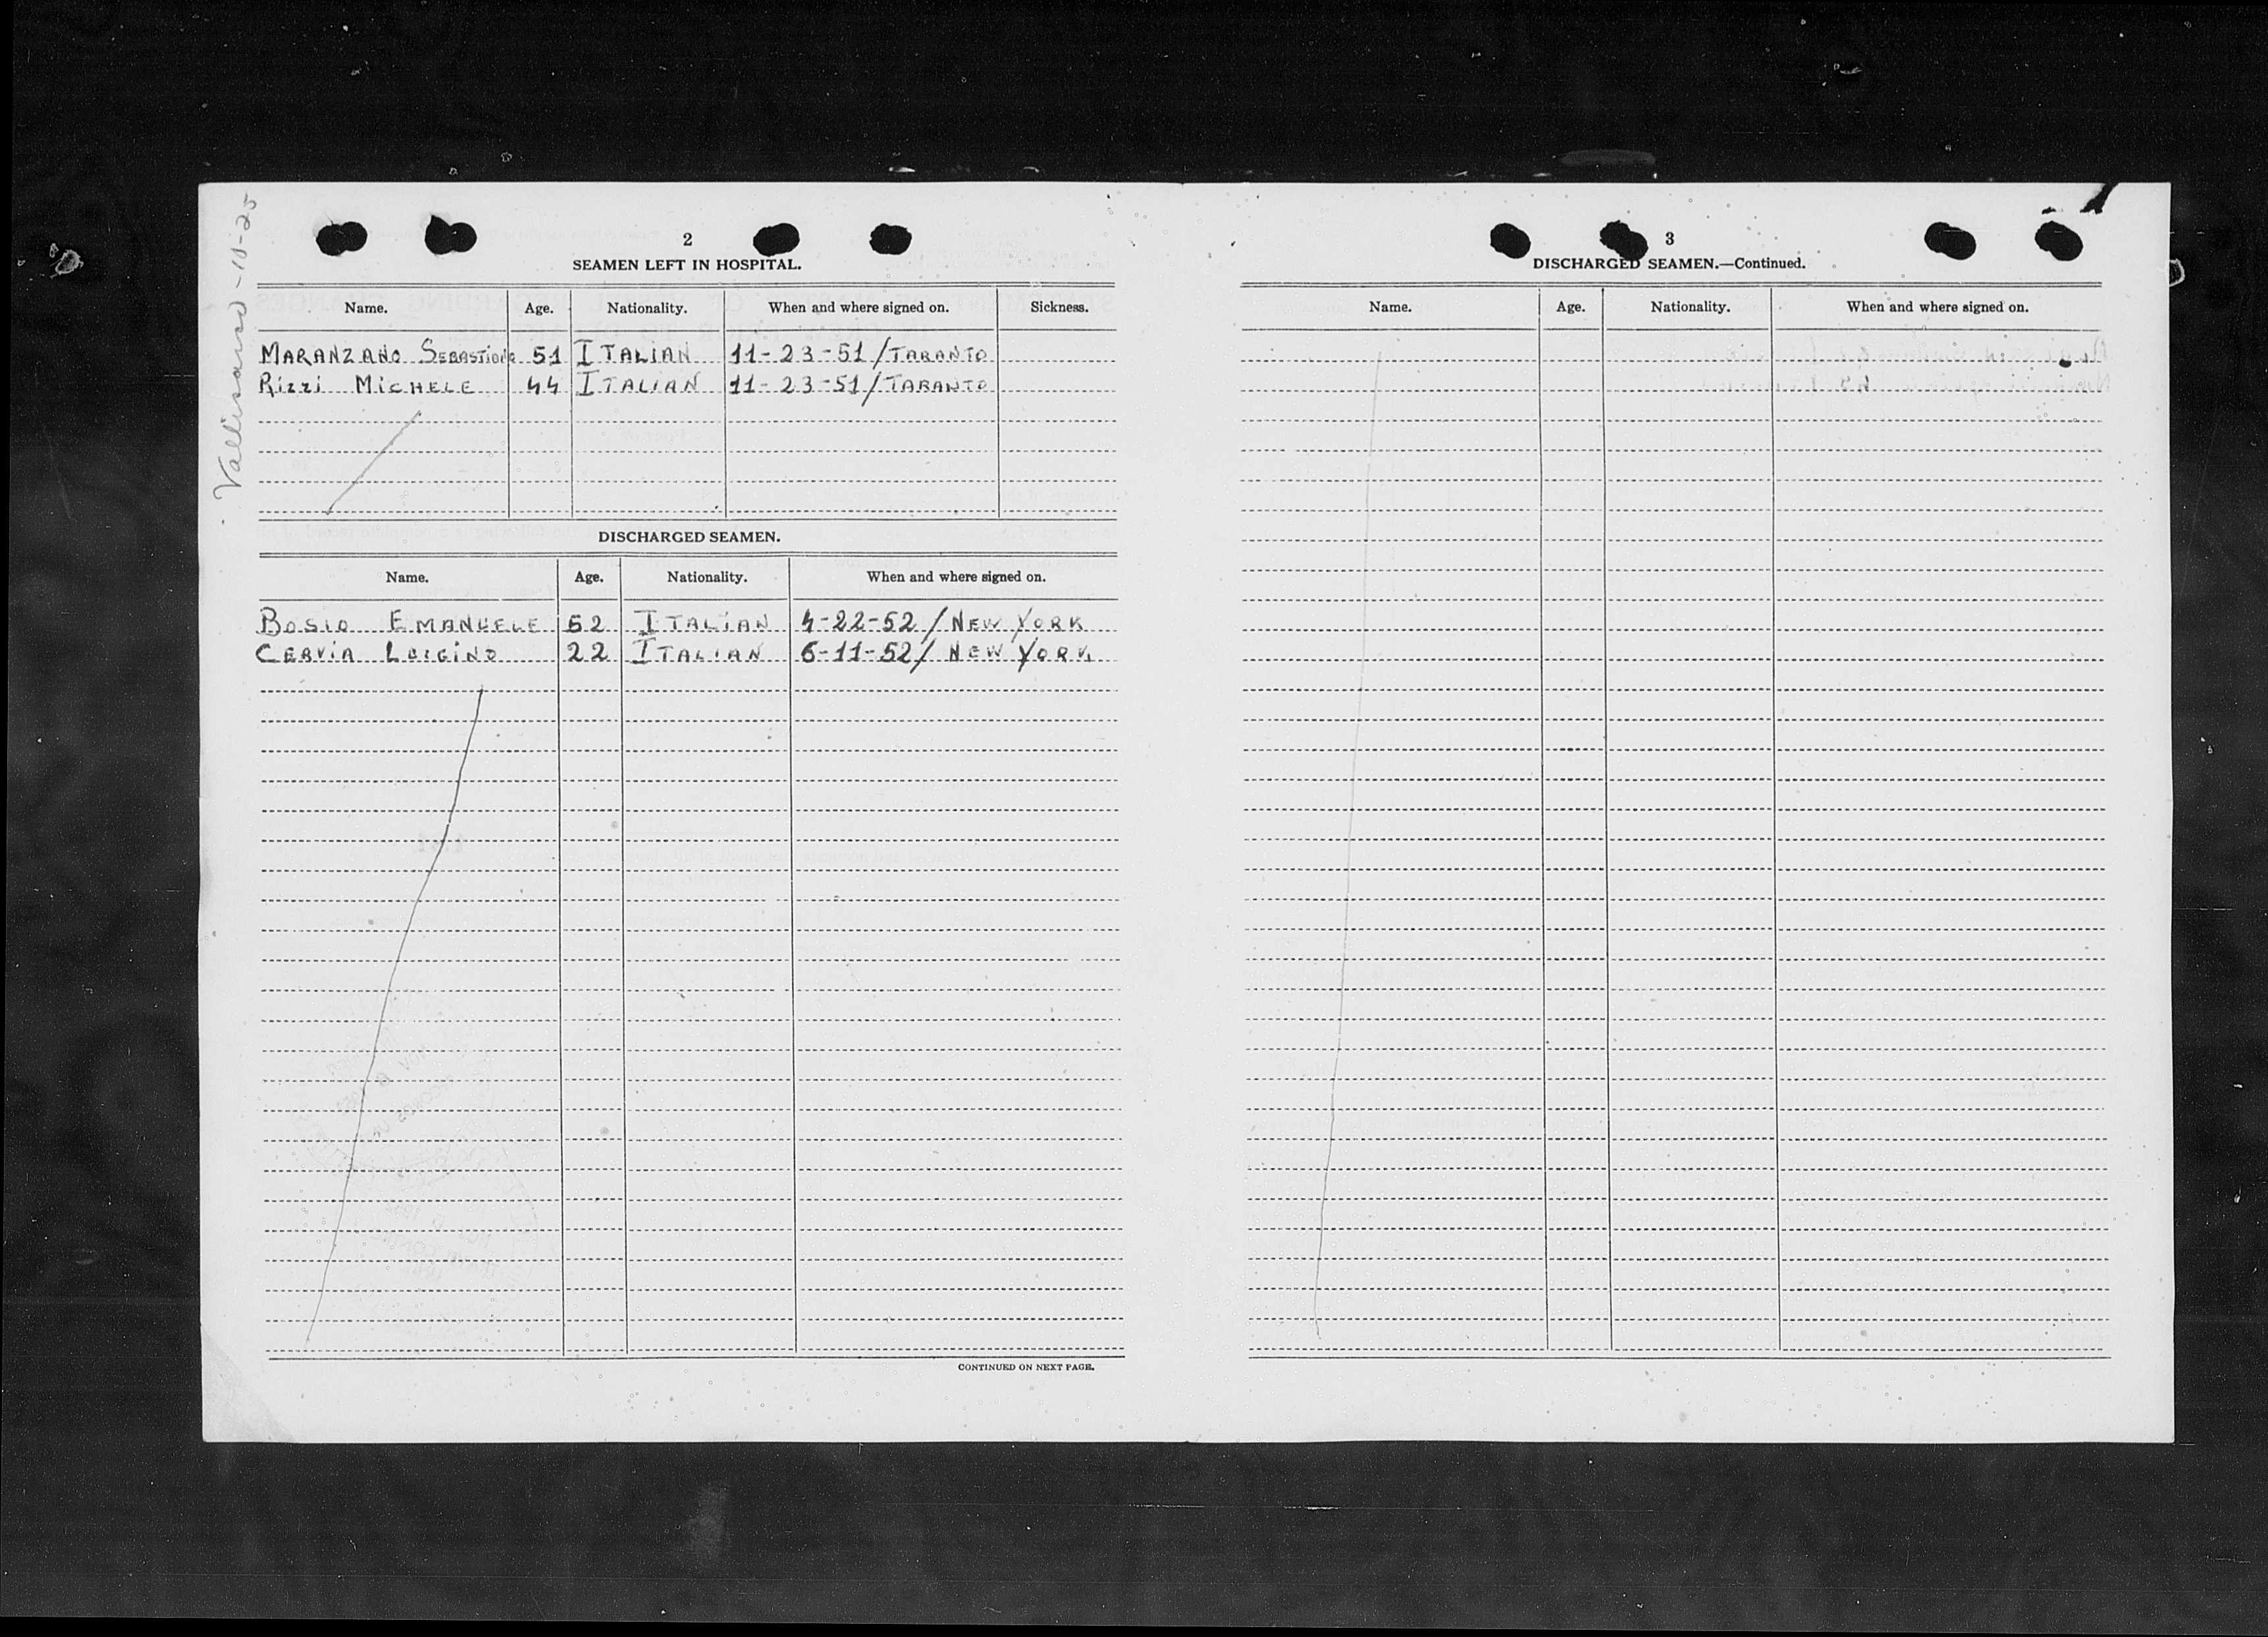 Vallisarno - 11-25
2
SEAMEN LEFT IN HOSPITAL.
Name. Age. Nationality. When and where signed on. Sickness.
MARANZANO SEBASTIONO 51 ITALIAN 11-23-51/TARANTO
RIZZI MICHELE 44 ITALIAN 11-23-51/TARANTO
DISCHARGED SEAMEN.
Name. Age. Nationality. When and where signed on.
BOSIO EMANUELE 52 ITALIAN 4-22-52/NEW YORK
CERVIA LUIGINO 22 ITALIAN 6-11-52/NEW YORK
CONTINUED ON NEXT PAGE.
3
DISCHARGED SEAMEN.—Continued.
Name. Age. Nationality. When and where signed on.